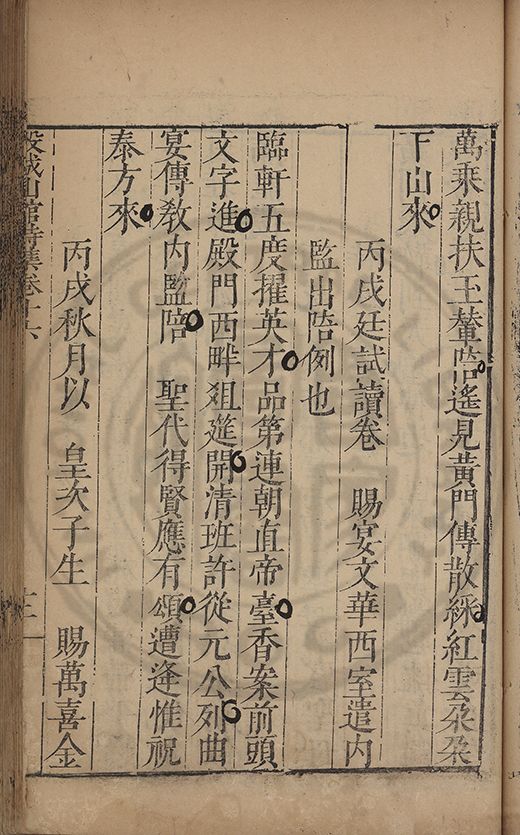 萬乘親扶玉輦陪遙見黃門傳散綵紅雲朶朶
下山來
丙戌廷試讀卷　賜宴文華西室遣内
監出陪例也
臨軒五度擢英才品第連朝直帝臺香案前頭
文字進殿門西畔俎筵開清班許從元公列曲
宴傳教内監陪　聖代得賢應有頌遭逢惟祝
泰方來
丙戌秋月以　皇次子生　賜萬喜金
穀城山館詩集卷十六